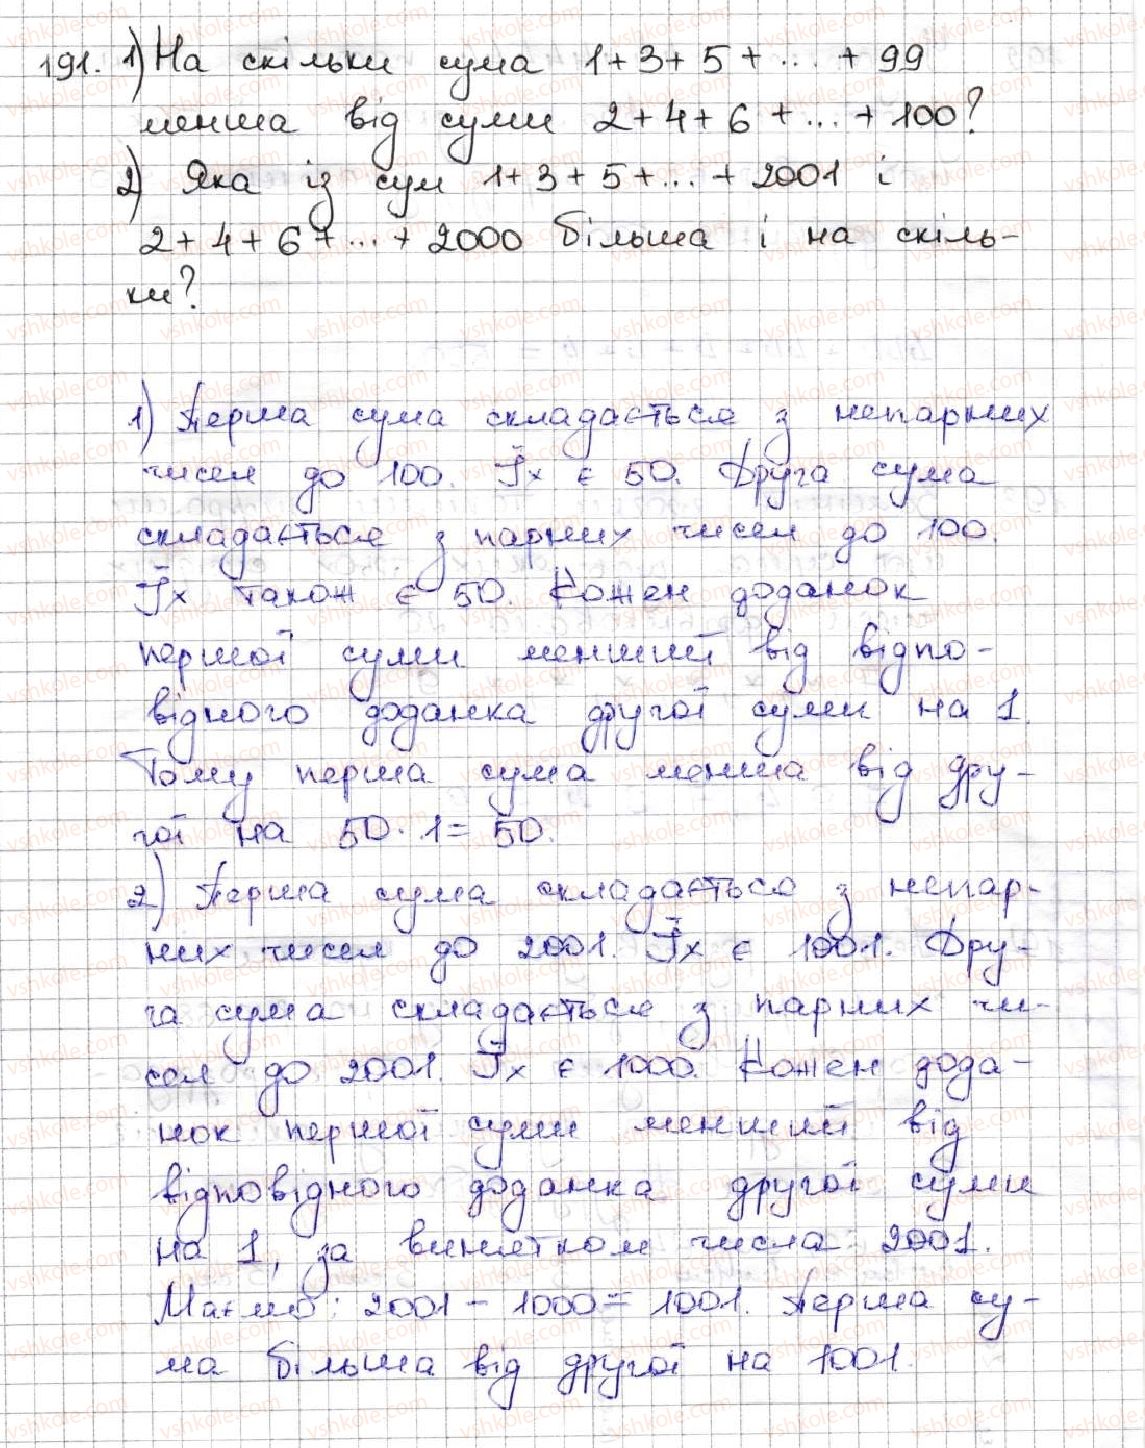 191. 1) На скільки сума 1+3+5+...+99
менша від суми 2+4+6+...+100?
2) Яка із сум 1+3+5+...+2001 і
2+4+6+...+2000 більша і на скіль-
ки?
1) Перша сума складається з непарних
чисел до 100. Їх є 50. Друга сума
складається з парних чисел до 100.
Їх також є 50. Кожен доданок
першої суми менший від відпо-
відного доданка другої суми на 1.
Тому перша сума менша від дру-
гої на 50·1=50.
2) Перша сума складається з непар-
них чисел до 2001. Їх є 1001. Дру-
га сума складається з парних чи-
сел до 2001. Їх є 1000. Кожен дода-
нок першої суми менший від
відповідного доданка другої суми
на 1, за винятком числа 2001.
Маємо: 2001-1000=1001. Перша су-
ма більша від другої на 1001.